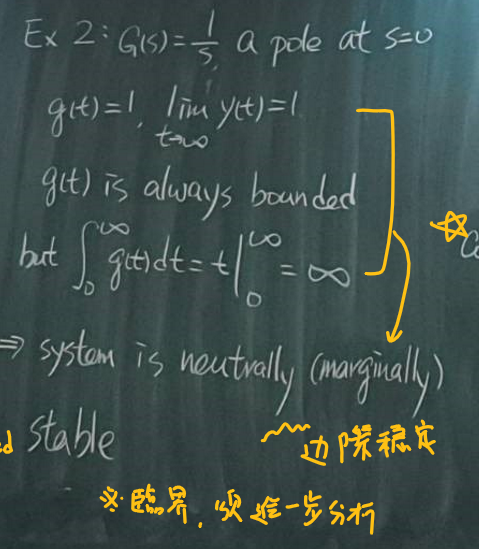 Ex 2: G(s)=1/s, a pole at s=0
g(t)=1, lim t→∞ y(t)=1
g(t) is always bounded
but ∫₀^∞ g(t)dt=t|₀^∞=∞
⇒ system is neutrally (marginally)
stable
边際稳定
※臨界,須進一步分析